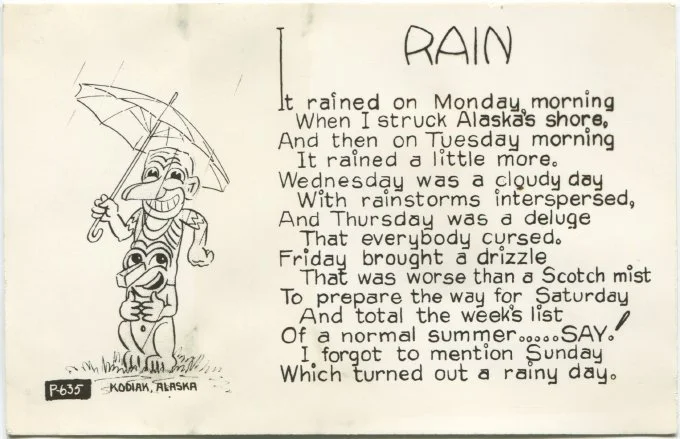 RAIN
It rained on Monday morning
When I struck Alaska's shore,
And then on Tuesday morning
It rained a little more.
Wednesday was a cloudy day
With rainstorms interspersed,
And Thursday was a deluge
That everybody cursed.
Friday brought a drizzle
That was worse than a Scotch mist
To prepare the way for Saturday
And total the week's list
Of a normal summer.....SAY!
I forgot to mention Sunday
Which turned out a rainy day.
P-635 KODIAK, ALASKA